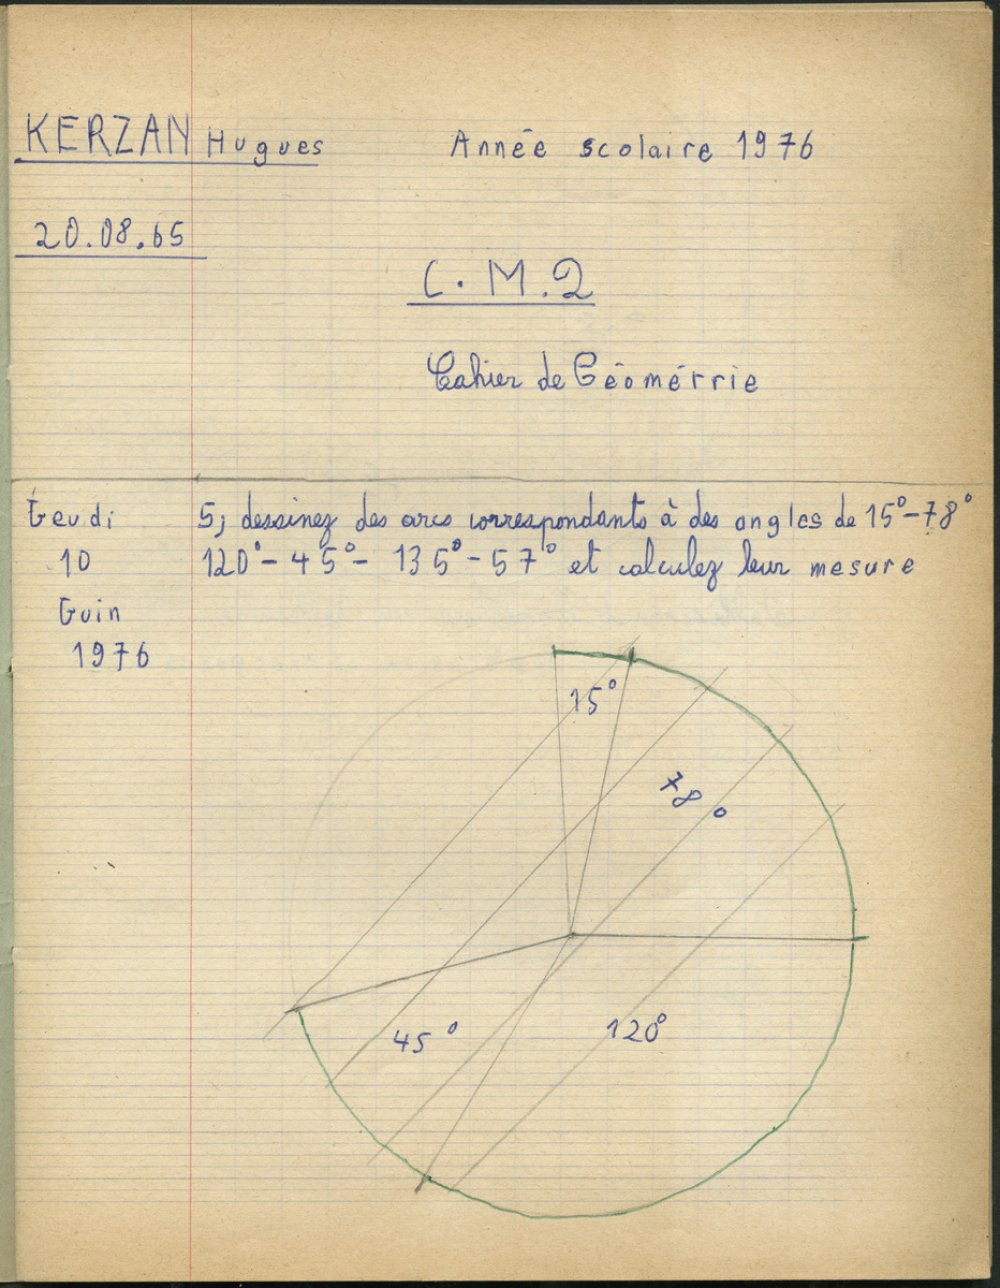 KERZAN Hugues Année scolaire 1976
20.08.65
C.M.2
Cahier de Géométrie
Jeudi 5, dessinez des arcs correspondants à des angles de 15°-78°
10 120°- 45°- 135°-57° et calculez leur mesure
Juin
1976
15°
78°
45° 120°